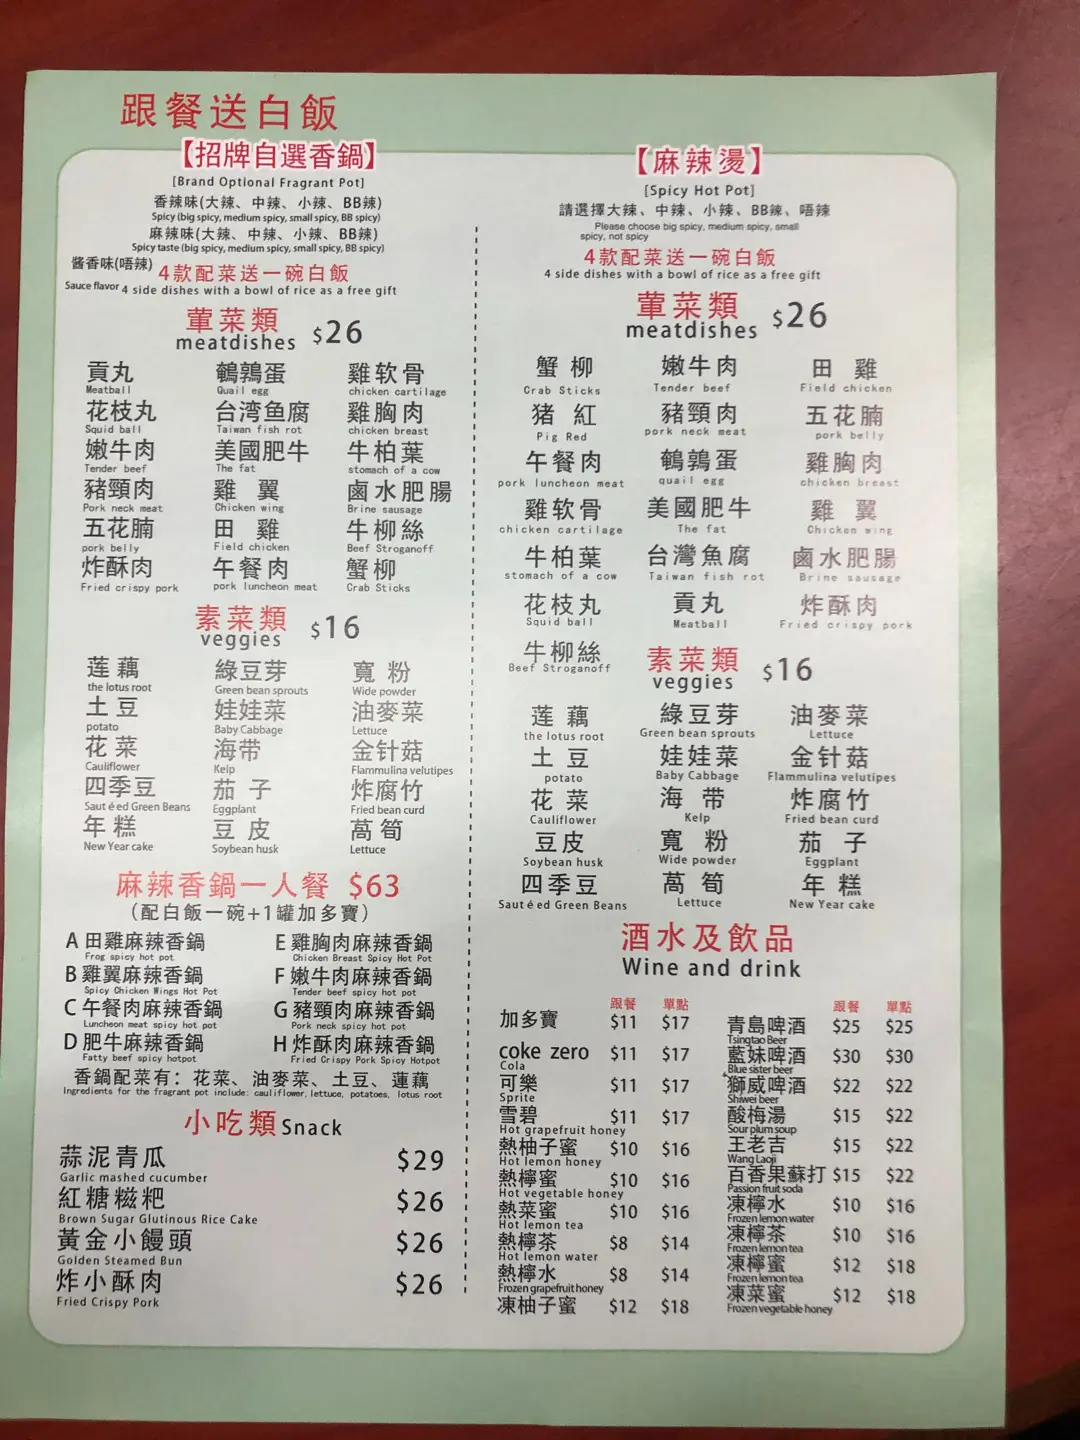 跟餐送白飯
【招牌自選香鍋】
[Brand Optional Fragrant Pot]
香辣味(大辣、中辣、小辣、BB辣)
Spicy (big spicy, medium spicy, small spicy, BB spicy)
麻辣味(大辣、中辣、小辣、BB辣)
Spicy taste (big spicy, medium spicy, small spicy, BB spicy)
醬香味(唔辣) 4款配菜送一碗白飯
Sauce flavor 4 side dishes with a bowl of rice as a free gift
葷菜類 $26
meatdishes
貢丸 鵪鶉蛋 雞软骨
Meatball Quail egg chicken cartilage
花枝丸 台湾鱼腐 雞胸肉
Squid ball Taiwan fish rot chicken breast
嫩牛肉 美國肥牛 牛柏葉
Tender beef The fat stomach of a cow
豬頸肉 雞 翼 鹵水肥腸
Pork neck meat Chicken wing Brine sausage
五花腩 田 雞 牛柳絲
pork belly Field chicken Beef Stroganoff
炸酥肉 午餐肉 蟹柳
Fried crispy pork pork luncheon meat Crab Sticks
素菜類 $16
veggies
莲藕 綠豆芽 寬 粉
the lotus root Green bean sprouts Wide powder
土豆 娃娃菜 油麥菜
potato Baby Cabbage Lettuce
花菜 海带 金针菇
Cauliflower Kelp Flammulina velutipes
四季豆 茄 子 炸腐竹
Saut é ed Green Beans Eggplant Fried bean curd
年糕 豆 皮 萵 筍
New Year cake Soybean husk Lettuce
麻辣香鍋一人餐 $63
（配白飯一碗+1罐加多寶）
A 田雞麻辣香鍋 E 雞胸肉麻辣香鍋
Frog spicy hot pot Chicken Breast Spicy Hot Pot
B 雞翼麻辣香鍋 F 嫩牛肉麻辣香鍋
Spicy Chicken Wings Hot Pot Tender beef spicy hot pot
C 午餐肉麻辣香鍋 G 豬頸肉麻辣香鍋
Luncheon meat spicy hot pot Pork neck spicy hot pot
D 肥牛麻辣香鍋 H 炸酥肉麻辣香鍋
Fatty beef spicy hotpot Fried Crispy Pork Spicy Hotpot
香鍋配菜有：花菜、油麥菜、土豆、蓮藕
Ingredients for the fragrant pot include: cauliflower, lettuce, potatoes, lotus root
小吃類 Snack
蒜泥青瓜 $29
Garlic mashed cucumber
紅糖糍粑 $26
Brown Sugar Glutinous Rice Cake
黃金小饅頭 $26
Golden Steamed Bun
炸小酥肉 $26
Fried Crispy Pork
【麻辣燙】
[Spicy Hot Pot]
請選擇大辣、中辣、小辣、BB辣、唔辣
Please choose big spicy, medium spicy, small
spicy, not spicy
4款配菜送一碗白飯
4 side dishes with a bowl of rice as a free gift
葷菜類 $26
meatdishes
蟹 柳 嫩牛肉 田 雞
Crab Sticks Tender beef Field chicken
猪 紅 豬頸肉 五花腩
Pig Red pork neck meat pork belly
午餐肉 鵪鶉蛋 雞胸肉
pork luncheon meat quail egg chicken breast
雞软骨 美國肥牛 雞 翼
chicken cartilage The fat Chicken wing
牛柏葉 台灣魚腐 鹵水肥腸
stomach of a cow Taiwan fish rot Brine sausage
花枝丸 貢丸 炸酥肉
Squid ball Meatball Fried crispy pork
牛柳絲
Beef Stroganoff
素菜類 $16
veggies
莲 藕 綠豆芽 油麥菜
the lotus root Green bean sprouts Lettuce
土 豆 娃娃菜 金针菇
potato Baby Cabbage Flammulina velutipes
花 菜 海 带 炸腐竹
Cauliflower Kelp Fried bean curd
豆皮 寬 粉 茄 子
Soybean husk Wide powder Eggplant
四季豆 萵 筍 年 糕
Saut é ed Green Beans Lettuce New Year cake
酒水及飲品
Wine and drink
跟餐 單點
加多寶 $11 $17
coke zero $11 $17
Cola
可樂 $11 $17
Sprite
雪碧 $11 $17
Hot grapefruit honey
熱柚子蜜 $10 $16
Hot lemon honey
熱檸蜜 $10 $16
Hot vegetable honey
熱菜蜜 $10 $16
Hot lemon tea
熱檸茶 $8 $14
Hot lemon water
熱檸水 $8 $14
Frozen grapefruit honey
凍柚子蜜 $12 $18
跟餐 單點
青島啤酒 $25 $25
Tsingtao Beer
藍妹啤酒 $30 $30
Blue sister beer
獅威啤酒 $22 $22
Shiwei beer
酸梅湯 $15 $22
Sour plum soup
王老吉 $15 $22
Wang Laoji
百香果蘇打 $15 $22
Passion fruit soda
凍檸水 $10 $16
Frozen lemon water
凍檸茶 $10 $16
Frozen lemon tea
凍檸蜜 $12 $18
Frozen lemon tea
凍菜蜜 $12 $18
Frozen vegetable honey